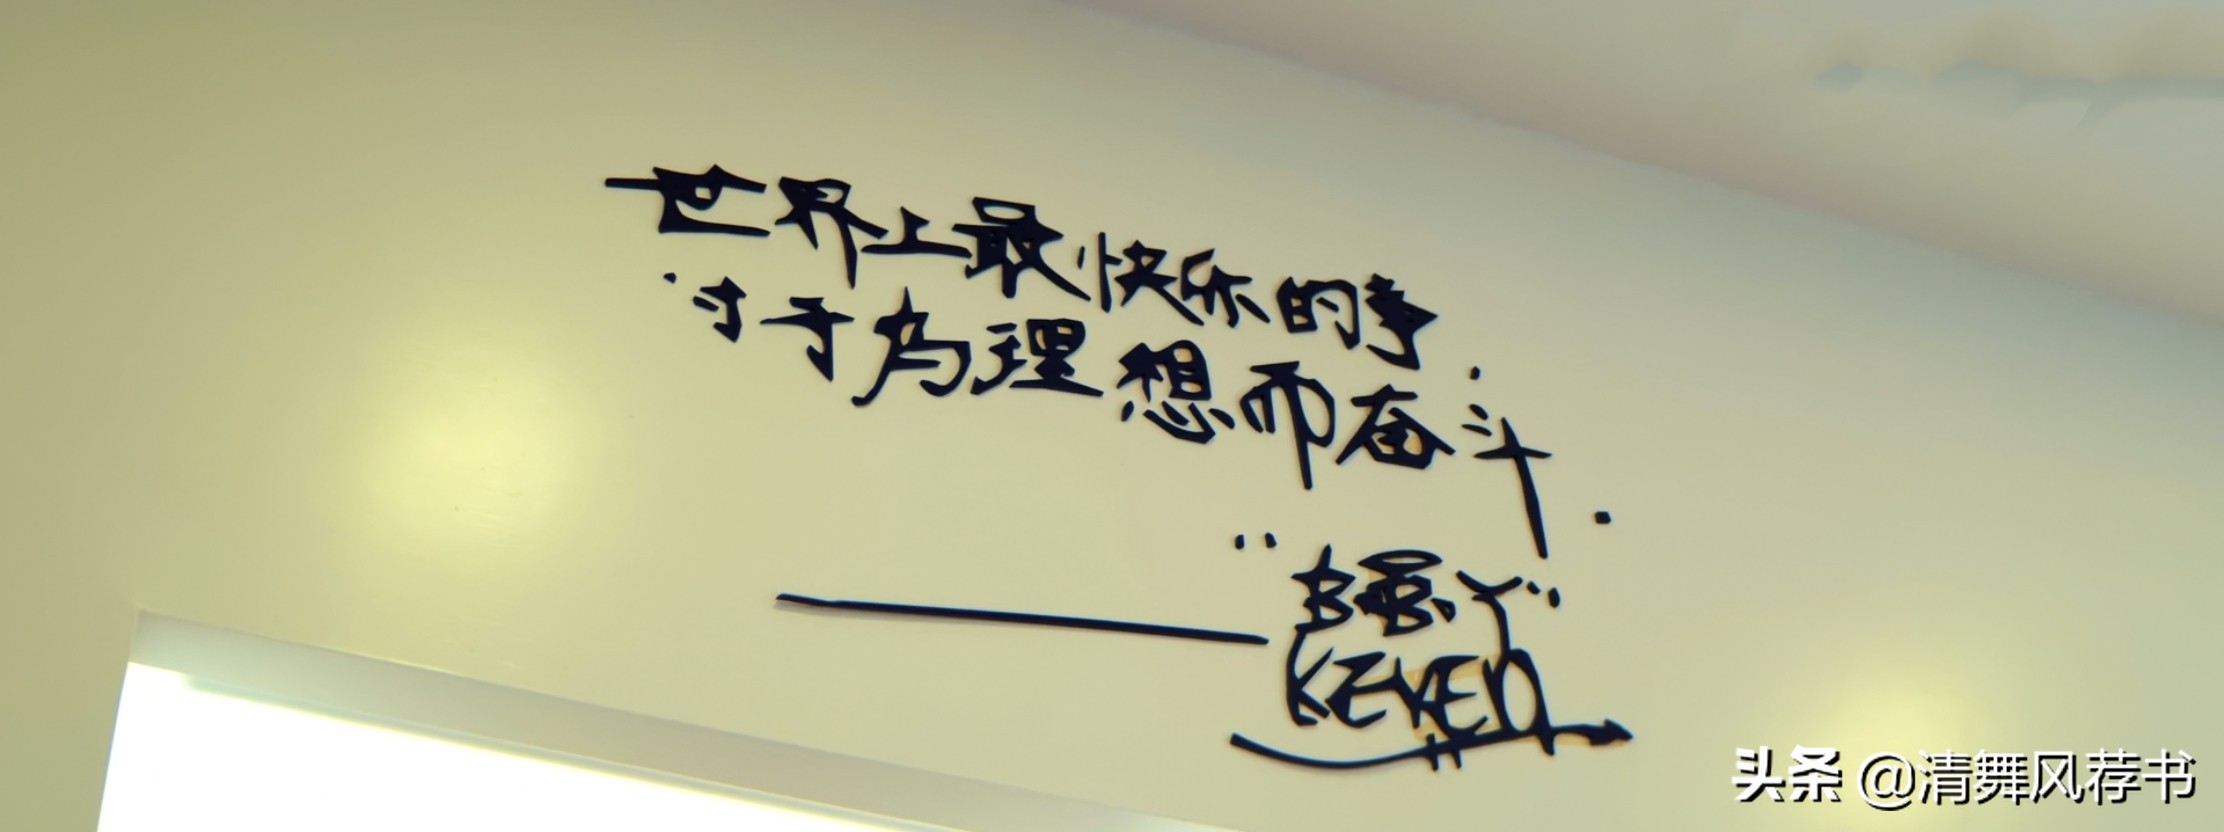 世界上最快乐的事
讨于为理想而奋斗.
KEKEN
头条 @清舞风荐书